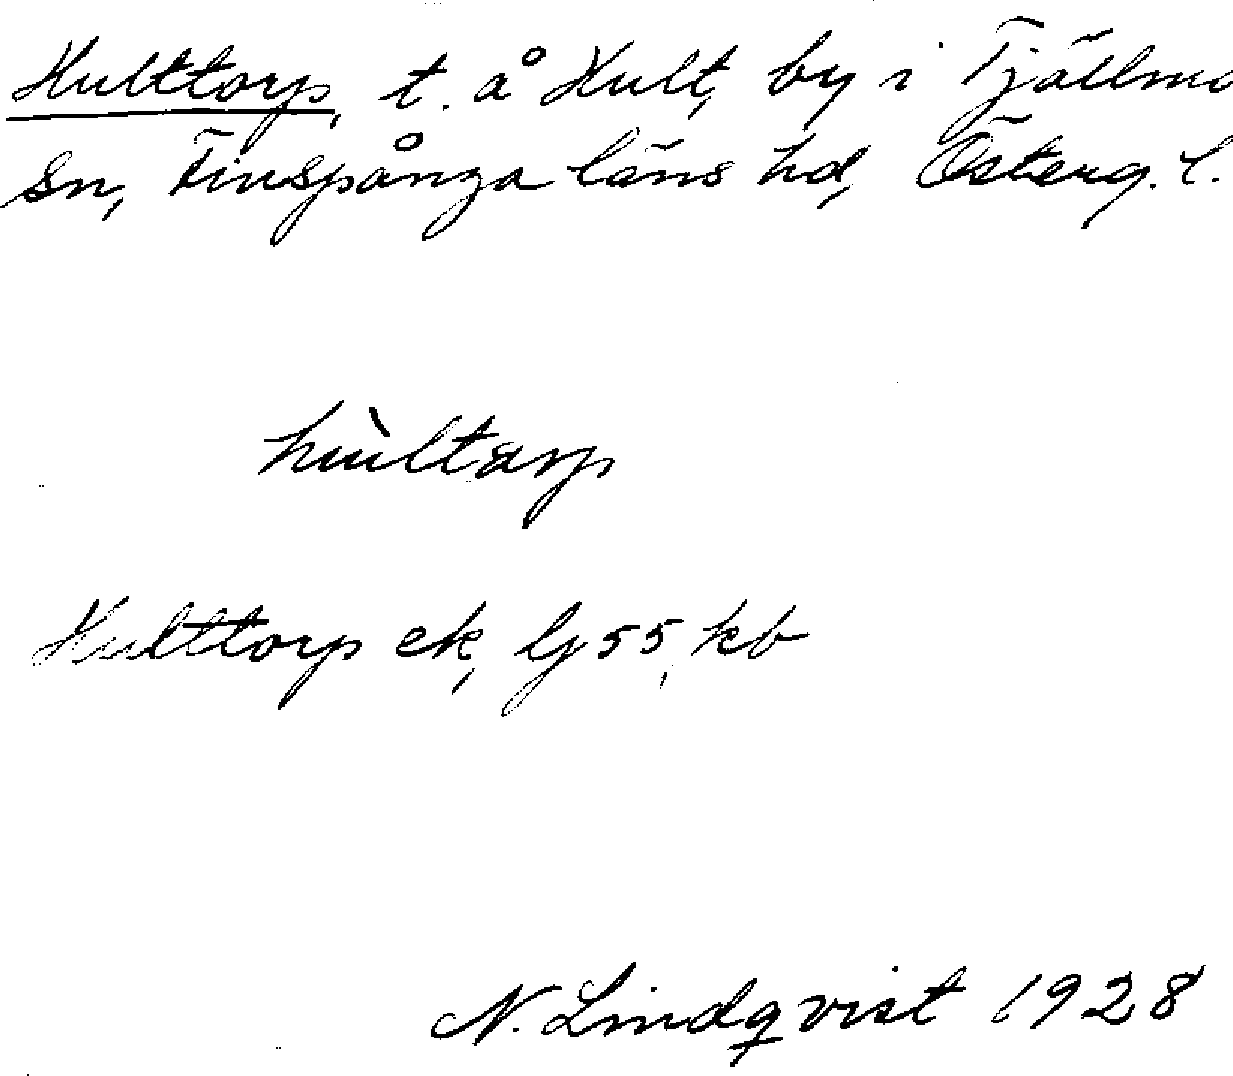 Hulttorp, t. å Hult, by i Tjällmo
sn, Finspånga läns hd, Österg. l.
hùltarp
Hulttorp ek, Gj 55, kb
N. Lindqvist 1928